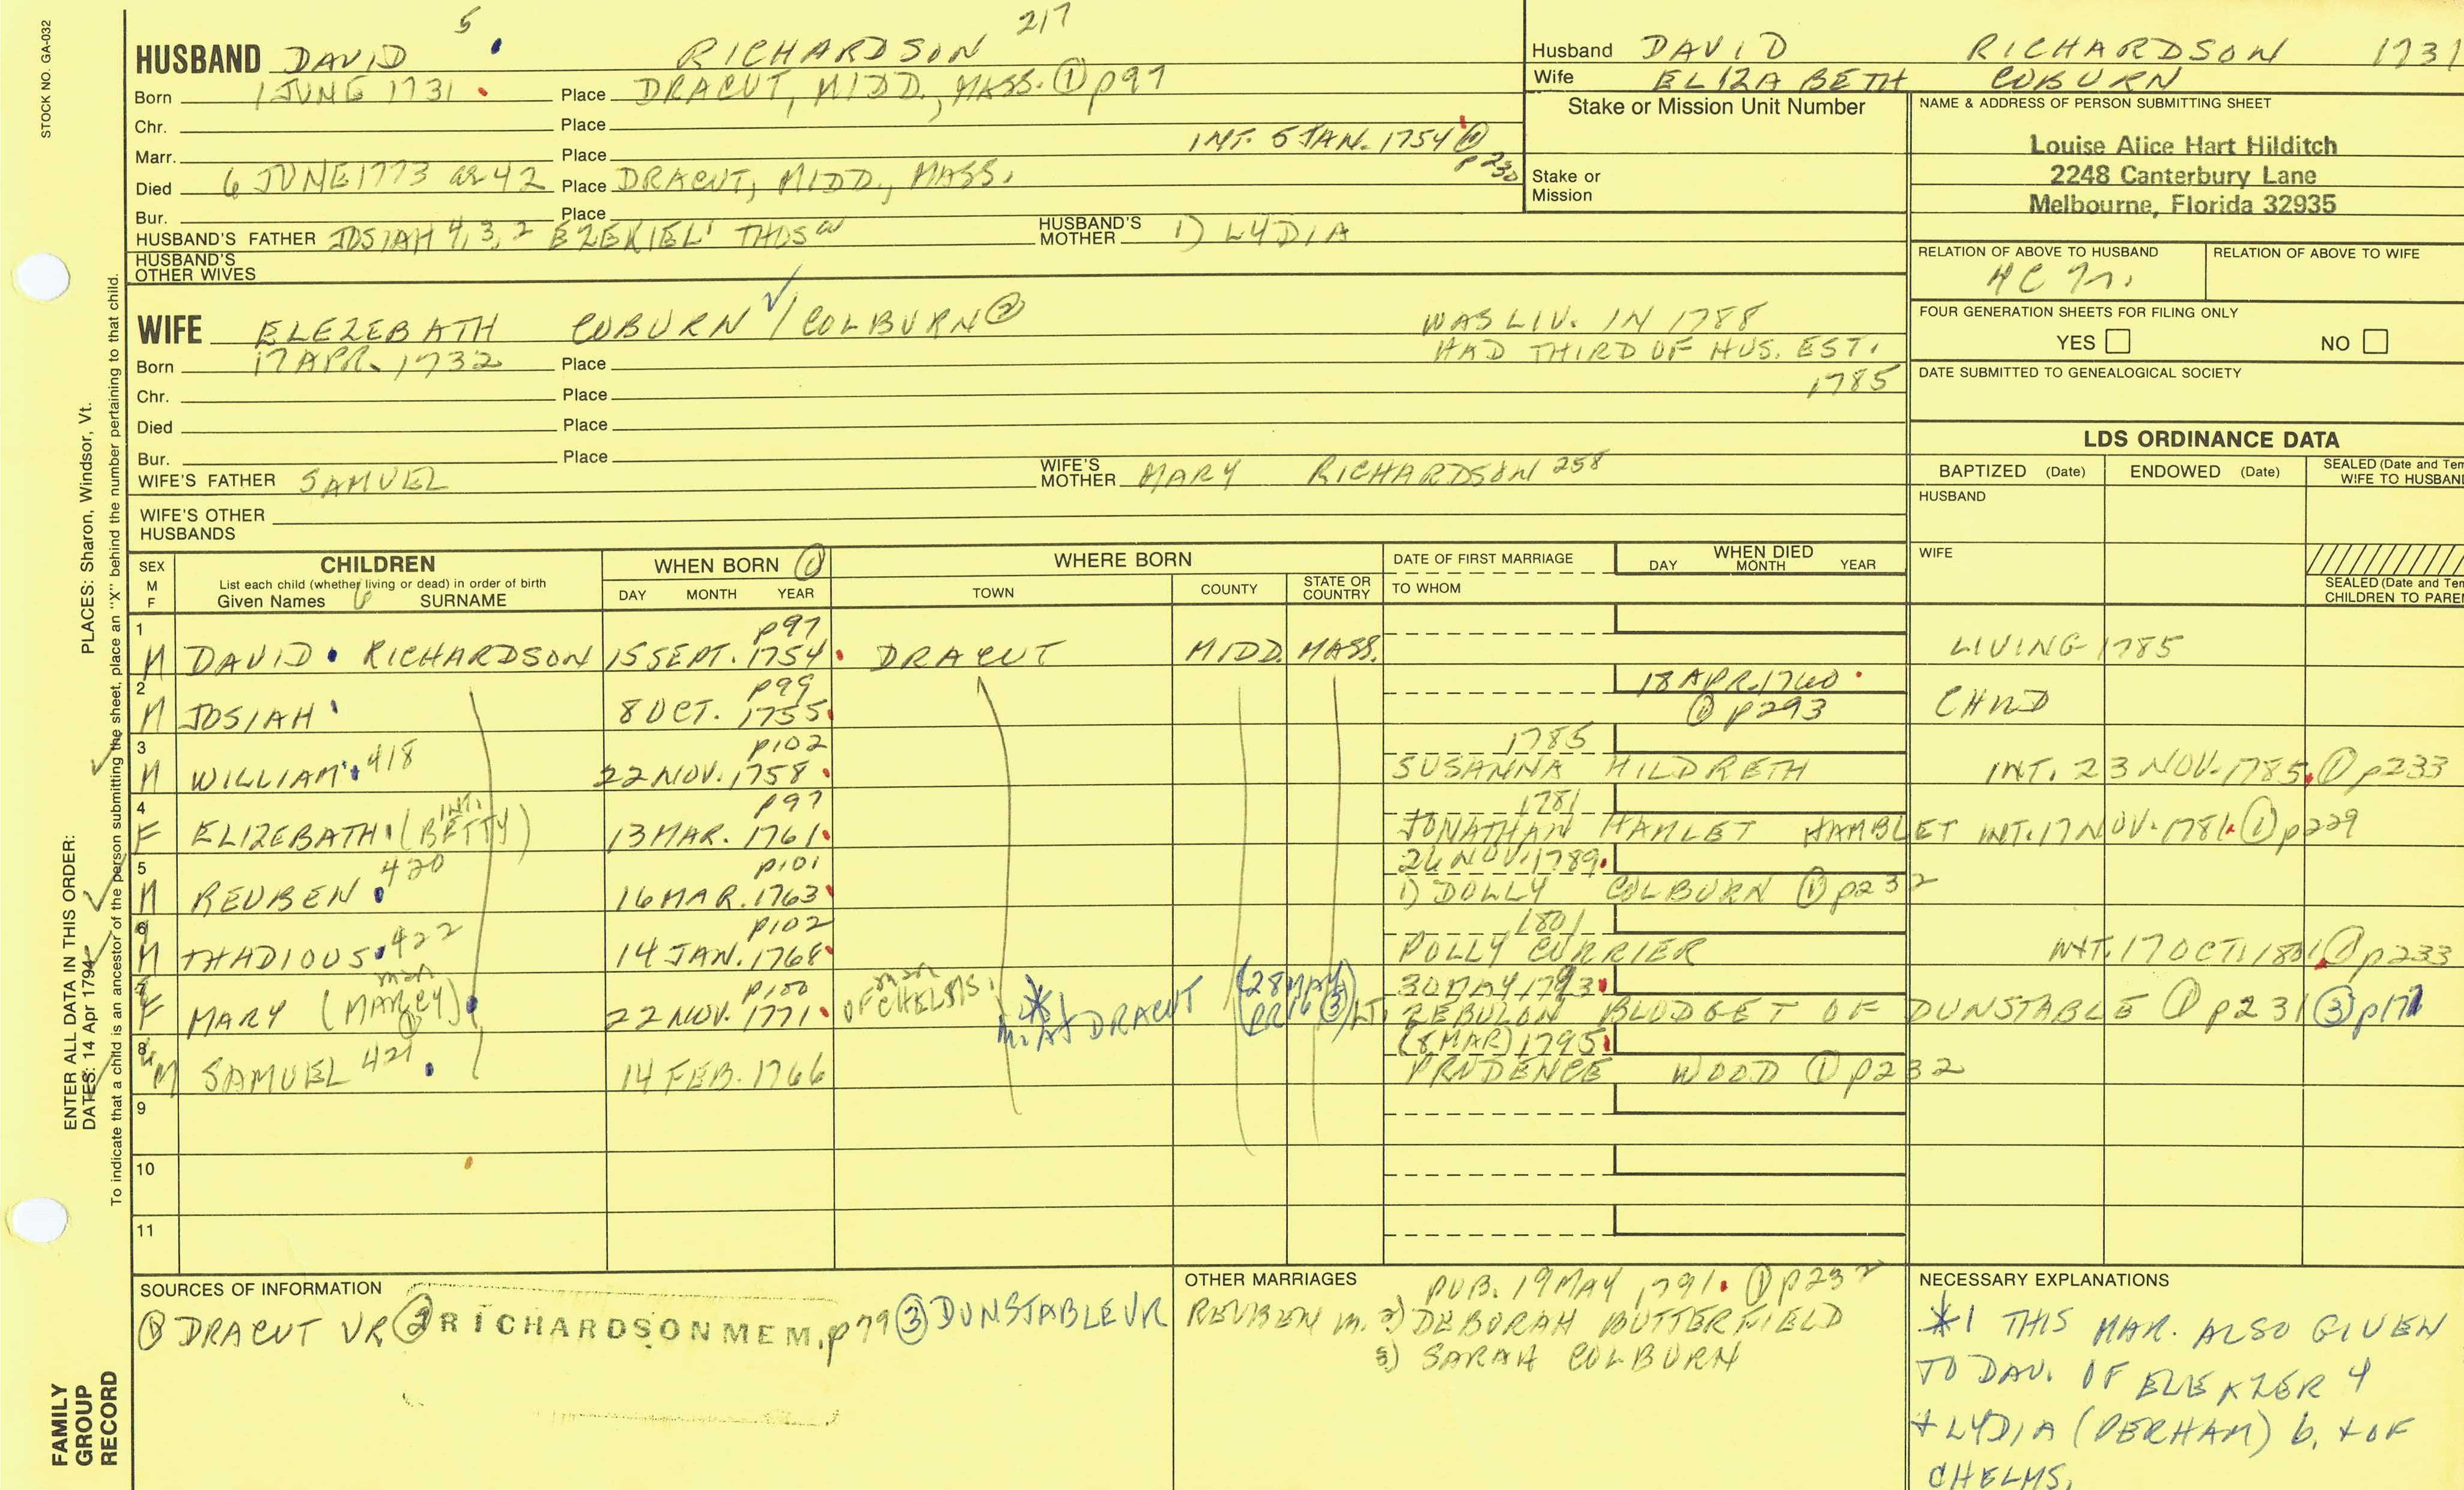 STOCK NO. GA-032
5 217
HUSBAND DAVID RICHARDSON
Born 1 JUNE 1731 Place DRACUT, MIDD., MASS. ① p97
Chr. Place
Marr. Place INT. 5 JAN. 1754 ① p230
Died 6 JUNE 1773 ae 42 Place DRACUT, MIDD., MASS.
Bur. Place
HUSBAND'S FATHER JOSIAH 4, 3, 2 EZEKIEL 1 THOS HUSBAND'S MOTHER 1) LYDIA
HUSBAND'S OTHER WIVES
WIFE ELEZEBATH COBURN / COLBURN ②
WAS LIV. IN 1788
HAD THIRD OF HUS. EST.
1785
Born 17 APR. 1732 Place
Chr. Place
Died Place
Bur. Place
WIFE'S FATHER SAMUEL WIFE'S MOTHER MARY RICHARDSON 258
WIFE'S OTHER HUSBANDS
Husband DAVID RICHARDSON 1731
Wife ELIZABETH COBURN
Stake or Mission Unit Number
Stake or Mission
NAME & ADDRESS OF PERSON SUBMITTING SHEET
Louise Alice Hart Hilditch
2248 Canterbury Lane
Melbourne, Florida 32935
RELATION OF ABOVE TO HUSBAND RELATION OF ABOVE TO WIFE
FOUR GENERATION SHEETS FOR FILING ONLY
YES NO
DATE SUBMITTED TO GENEALOGICAL SOCIETY
LDS ORDINANCE DATA
BAPTIZED (Date) ENDOWED (Date) SEALED (Date and Tem
WIFE TO HUSBAND
HUSBAND
WIFE
SEALED (Date and Tem
CHILDREN TO PARE
SEX M F
CHILDREN
List each child (whether living or dead) in order of birth
Given Names SURNAME
WHEN BORN ①
DAY MONTH YEAR
WHERE BORN
TOWN COUNTY STATE OR COUNTRY
DATE OF FIRST MARRIAGE
TO WHOM
WHEN DIED
DAY MONTH YEAR
1 p97
M DAVID RICHARDSON 15 SEPT. 1754 DRACUT MIDD. MASS. LIVING 1785
2 p99 18 APR. 1760
M JOSIAH 8 OCT. 1755 ① p293 CHILD
3 p102 1785
M WILLIAM 418 22 NOV. 1758 SUSANNA HILDRETH INT. 23 NOV. 1785 ① p233
4 INT. p97 1781
F ELIZEBATH (BETTY) 13 MAR. 1761 JONATHAN HAMLET HAMBLET INT. 17 NOV. 1781 ① p229
5 420 p101 26 NOV. 1789
M REUBEN 16 MAR. 1763 1) DOLLY COLBURN ① p232
6 p102 1801
M THADIOUS 422 14 JAN. 1768 POLLY CURRIER INT. 17 OCT. 1801 ① p233
7 p100 OF CHELMS. (28 MAY 30 MAY 1793
F MARY (MARCY) ① 22 NOV. 1771 * m. AT DRACUT ③) LT. ZEBULON BLODGET OF DUNSTABLE ① p231 ③ p171
8 (8 MAR) 1795
M SAMUEL 421 14 FEB. 1766 PRUDENCE WOOD ① p232
9
10
11
SOURCES OF INFORMATION
① DRACUT VR ② RICHARDSON MEM. p79 ③ DUNSTABLE VR
OTHER MARRIAGES
PUB. 19 MAY 1791 ① p232
REUBEN m. 2) DEBORAH BUTTERFIELD
3) SARAH COLBURN
NECESSARY EXPLANATIONS
*1 THIS MAR. ALSO GIVEN
TO DAU. OF ELEAZER 4
+ LYDIA (PERHAM) b. + OF
CHELMS.
ENTER ALL DATA IN THIS ORDER:
DATES: 14 Apr 1794 PLACES: Sharon, Windsor, Vt.
To indicate that a child is an ancestor of the person submitting the sheet, place an "X" behind the number pertaining to that child.
FAMILY
GROUP
RECORD